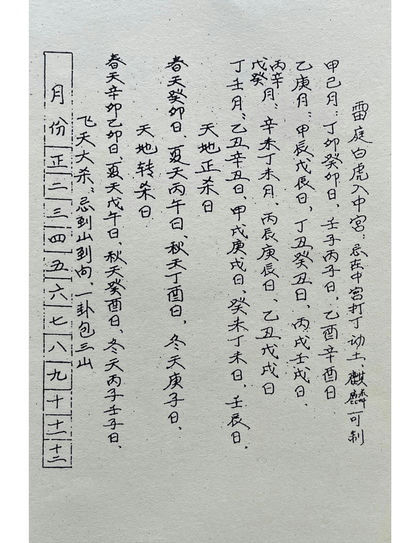 雷庭白虎入中宫：忌在中宫打丁动土 麒麟可制
甲己月：丁卯癸卯日、壬子丙子日、乙酉辛酉日
乙庚月：甲辰戊辰日、丁丑癸丑日、丙戌壬戌日、
丙辛
戊癸月：辛未丁未月、丙辰庚辰日、乙丑戊戌日
丁壬月：乙丑辛丑日、甲戌庚戌日、癸未丁未日、壬辰日、
天地正杀日
春天癸卯日、夏天丙午日、秋天丁酉日、冬天庚子日、
天地转杀日
春天辛卯乙卯日、夏天戊午日、秋天癸酉日、冬天丙子壬子日、
飞天大杀：忌到山到向、一卦包三山
月份 正 二 三 四 五 六 七 八 九 十 十一 十二